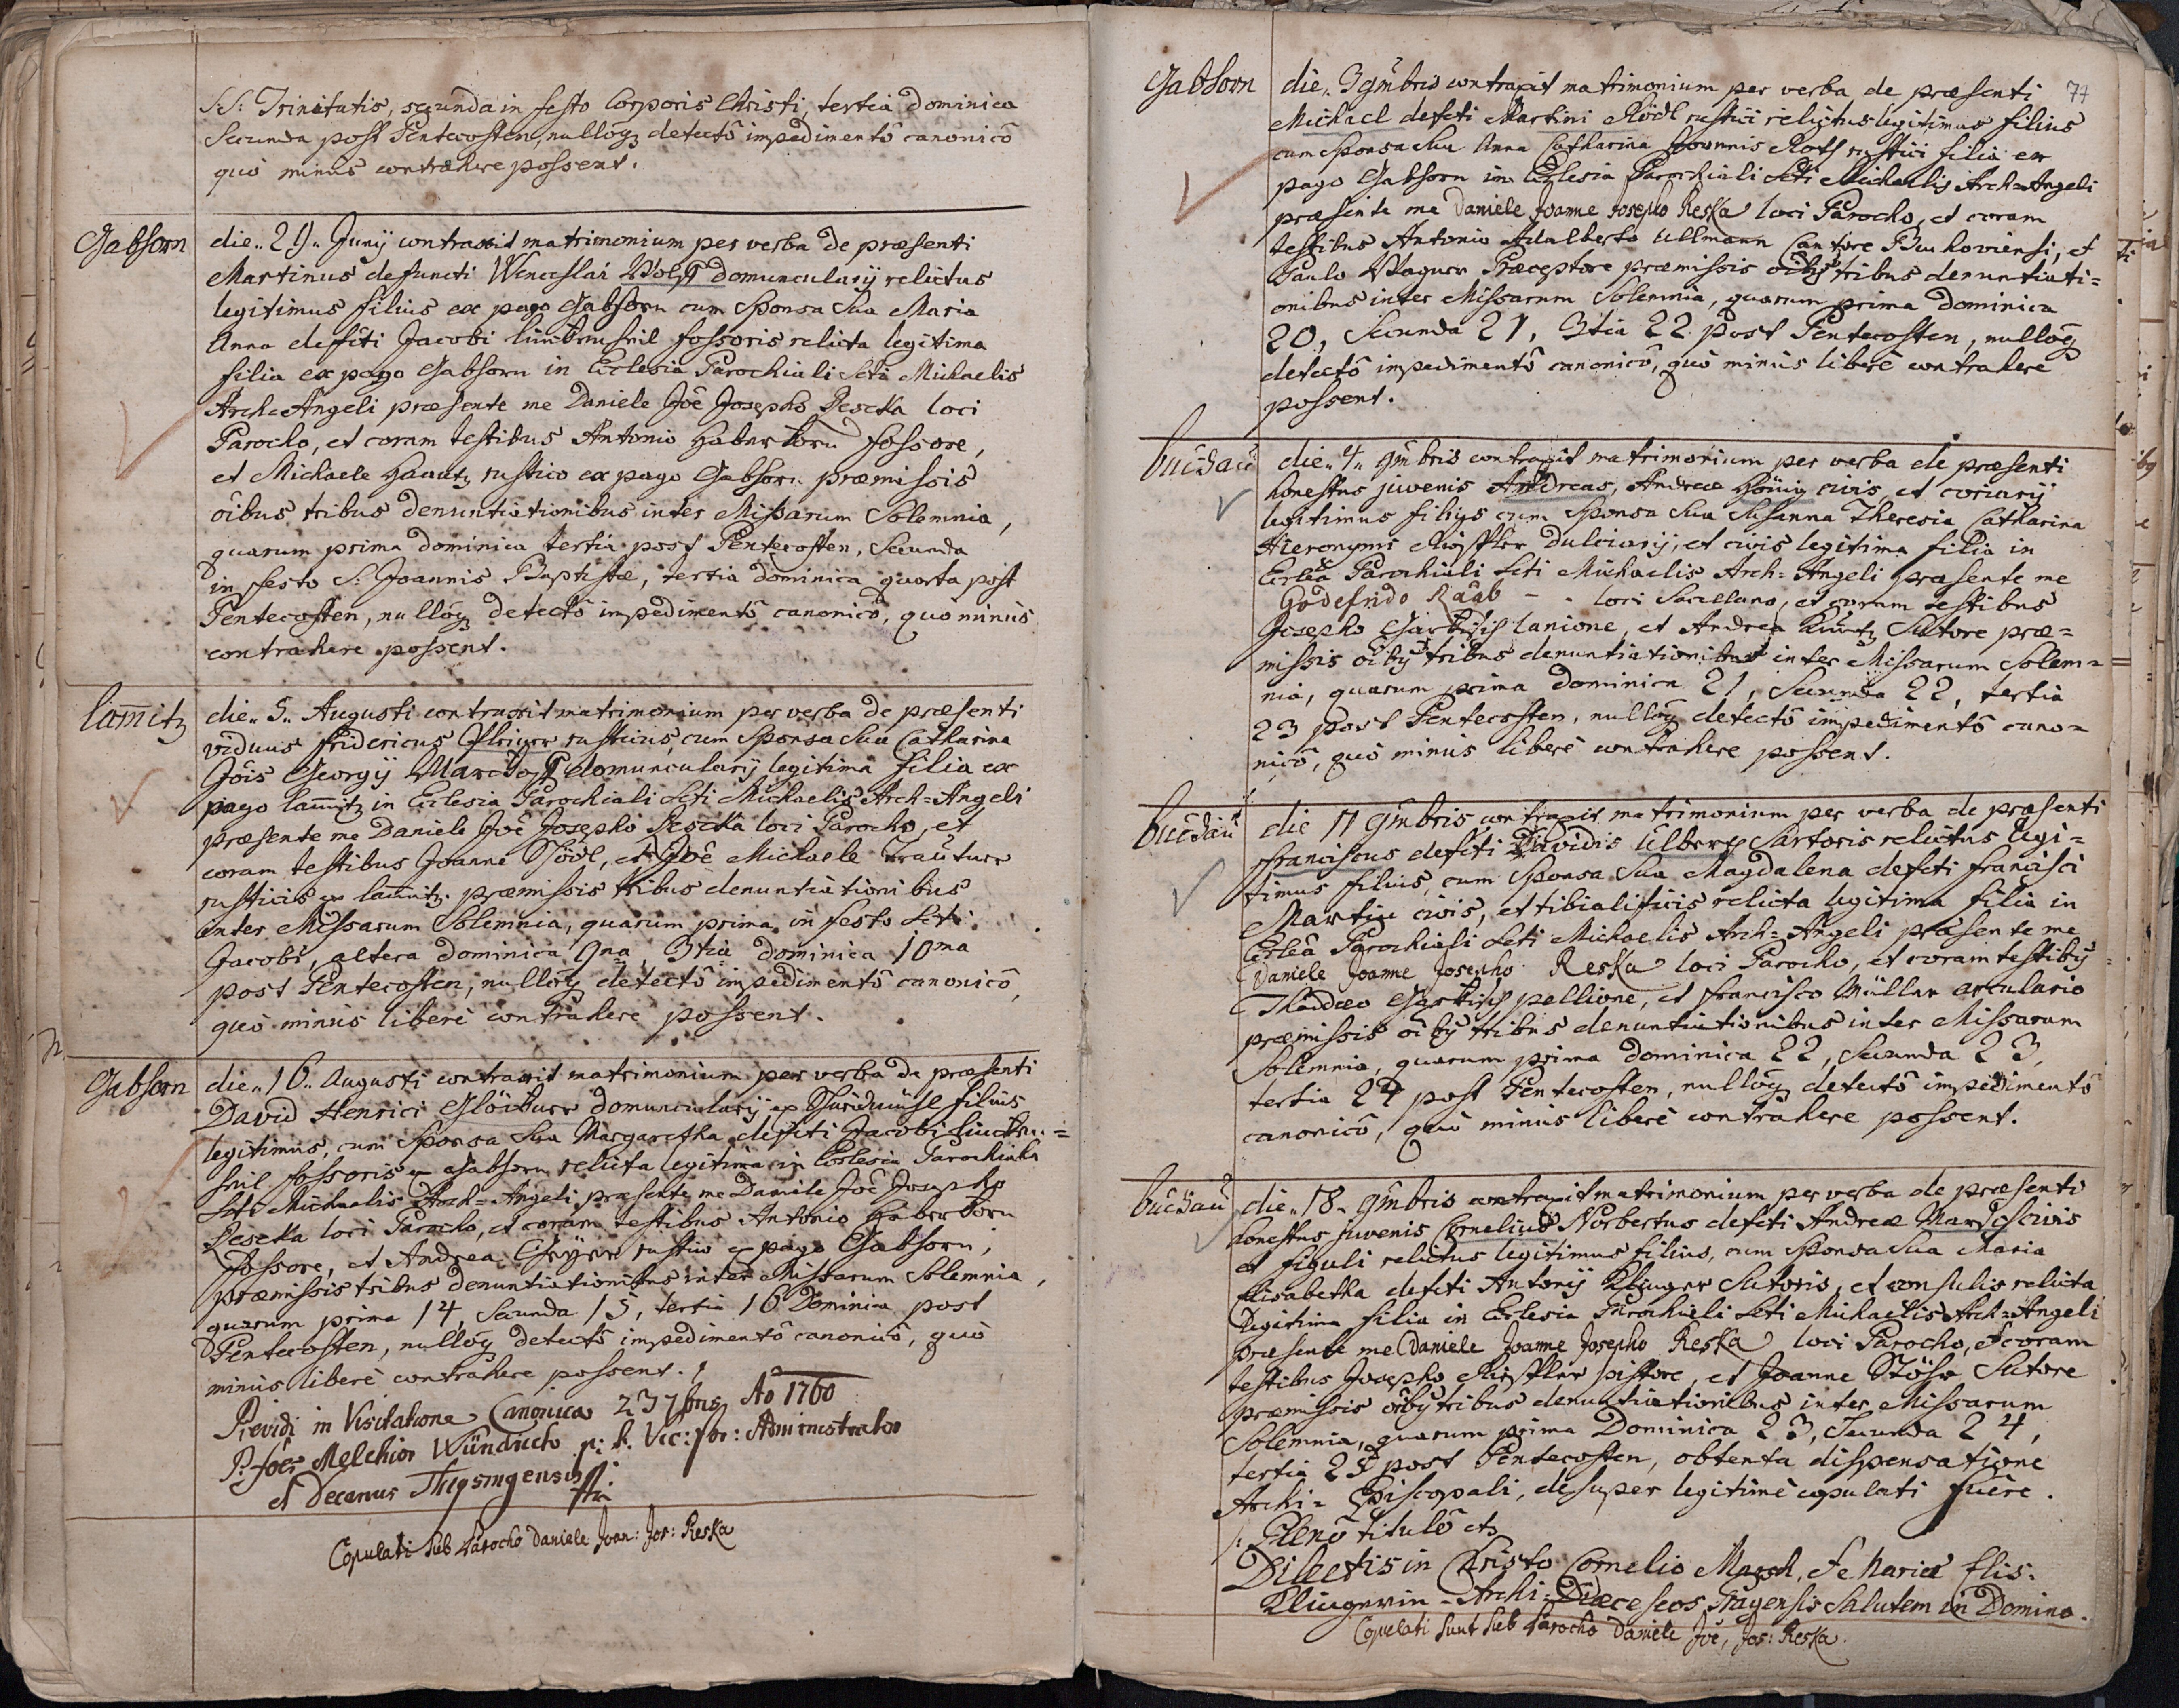 S.S: Trinitatis, secunda in festo Corporis Christi, tertia dominica
Secunda post Pentecosten, nullôq detectô impedimentô canonicô
quò minùs contrahere possent.
Gabhorn
die 29 Junij contraxit matrimonium per verba de præsenti
Martinus defuncti Wenceslai Wolff domuncularij relictus
legitimus filius ex pago Gabhorn cum Sponsa Sua Maria
Anna deffcti Jacobi fossoris relicta legitima
filia ex pago Gabhorn in Ecclesia Parochiali Scti Michaelis
Arch-Angeli præsente me Daniele Jôe Josepho Rescka loci
Parocho, et coram testibus Antonio Haberkorn fossore,
et Michaele rustico ex pago Gabhorn præmissis
oîbus tribus denuntiationibus inter Missarum Solemnia,
quarum prima dominica tertia post Pentecosten, Secunda
in festo S: Joannis Baptistæ, tertia dominica quarta post
Pentecosten, nullôq detectô impedimentô canonicô, quo minùs
contrahere possent.
lam̄itz
die 5 Augusti contraxit matrimonium per verba de præsenti
viduus Fridericus rusticus, cum Sponsa Sua Catharina
Jôis Georgij domuncularij legitima filia ex
pago lam̄itz in Ecclesia Parochiali Scti Michaelis Arch=Angeli
præsente me Daniele Jôe Josepho Rescka loci Parocho, et
coram testibus Joanne Rödl, et Jôe Michaele
rusticis ex lam̄itz. præmissis tribus denuntiationibus
inter Missarum Solemnia, quarum prima in festo Scti
Jacobi, altera dominica 9na, 3tia dominica 10ma
post Pentecosten, nullôq detectô impedimentô canonicô,
quò minùs liberè contrahere possent.
Gabhorn
die 16 Augusti contraxit matrimonium per verba de præsenti
David Henrici domuncularij ex filius
legitimus, cum Sponsa Sua Margaretha deffcti Jacobi
fossoris ex Gabhorn relicta legitima in Ecclesia Parochiali
Scti Michaelis Arch=Angeli præsente me Daniele Jôe Josepho
Rescka loci Parocho, et coram testibus Antonio Haberkorn
fossore, et Andrea rustico ex pago Gabhorn,
præmissis tribus denuntiationibus inter Missarum Solemnia,
quarum prima 14, Secunda 15, tertia 16 Dominica post
Pentecosten, nullôq detectô impedimentô canonicô, quò
minùs liberè contrahere possent.
Prævidi in Visitatione Canonica 23 7bris Ao 1760
P. Joês Melchior Wündrich p: t. Vic: for: Administrator
et Decanus Theysingensis
Copulati sub Parocho Daniele Joan: Jos: Reska
77
Gabhorn
die 3 9mbris contraxit matrimonium per verba de præsenti
Michael defcti Martini Rödl rustici relictus legitimus filius
cum Sponsa Sua Anna Catharina Joannis Roth rustici filia ex
pago Gabhorn in Ecclesia Parochiali Scti Michaelis Arch=Angeli
præsente me Daniele Joanne Josepho Reska loci Parocho, et coram
testibus Antonio Adalberto Ullmann Cantore Buchoviensi, et
Paulo Wagner Præceptore præmissis oîbq tribus denuntiati=
onibus inter Missarum Solemnia, quarum prima Dominica
20, Secunda 21, 3tia 22 post Pentecosten, nullôq
detectô impedimentô canonicô, quò minùs liberè contrahere
possent.
buchau
die 4 9mbris contraxit matrimonium per verba de præsenti
honestus juvenis Andreas, Andreæ Hönig civis, et coriarij
legitimus filius cum Sponsa Sua Susanna Theresia Catharina
Hieronymi dulciarij, et civis legitima filia in
Ecclêa Parochiali Scti Michaelis Arch=Angeli præsente me
Godefrido Raab - - loci Sacellano, et coram testibus
Josepho lanione, et Andrea Sutore præ=
missis oîbq tribus denuntiationibus inter Missarum Solem=
nia, quarum prima Dominica 21, Secunda 22, tertia
23 post Pentecosten, nullôq detectô impedimentô cano=
nicô, quò minùs liberè contrahere possent.
buchau
die 11 9mbris contraxit matrimonium per verba de præsenti
Franciscus defcti Davidis Ulbert Sartoris relictus legi=
timus filius, cum Sponsa Sua Magdalena defcti Francisci
Martin civis, et tibialificis relicta legitima filia in
Ecclêa Parochiali Scti Michaelis Arch=Angeli præsente me
Daniele Joanne Josepho Reska loci Parocho, et coram testibq
Thaddæo pellione, et Francisco Müller arculario
præmissis oîbq tribus denuntiationibus inter Missarum
Solemnia, quarum prima Dominica 22, Secunda 23,
tertia 24 post Pentecosten, nullôq detectô impedimentô
canonicô, quò minùs liberè contrahere possent.
buchau
die 18 9mbris contraxit matrimonium per verba de præsenti
honestus juvenis Cornelius Norbertus defcti Andreæ civis
et figuli relictus legitimus filius, cum Sponsa Sua Maria
Elisabetha defcti Antonij Klinger Sutoris, et consulis relicta
legitima filia in Ecclesia Parochiali Scti Michaelis Arch=Angeli
præsente me Daniele Joanne Josepho Reska loci Parocho, et coram
testibus Josepho pistore, et Joanne Stöhr Sutore
præmissis oîbq tribus denuntiationibus inter Missarum
Solemnia, quarum prima Dominica 23, Secunda 24,
tertia 25 post Pentecosten, obtenta dispensatione
Archi=Episcopali, desuper legitimè copulati fuêre.
/: Plenô titulô etc
Dilectis in Christo Cornelio Marsch, et Mariæ Elis:
Klingerin - Archi-Diæceseos Pragensis Salutem in Domino.
Copulati sunt sub Parocho Daniele Jôe, Jos: Reska.